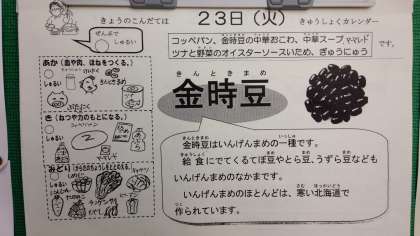 きょうのこんだては
23日(火)
きゅうしょくカレンダー
ぜんぶで
しゅるい
コッペパン、金時豆の中華おこわ、中華スープ ママレード
ツナと野菜のオイスターソースいため、ぎゅうにゅう
あか(血や肉、ほねをつくる。)
しゅるい
き(ねつや力のもとになる。)
コッペパン
しゅるい
みどり
しゅるい
きんときまめ
金時豆
金時豆はいんげんまめの一種です。
給食にでてくるてぼ豆やとら豆、うずら豆なども
いんげんまめのなかまです。
いんげんまめのほとんどは、寒い北海道で
作られています。